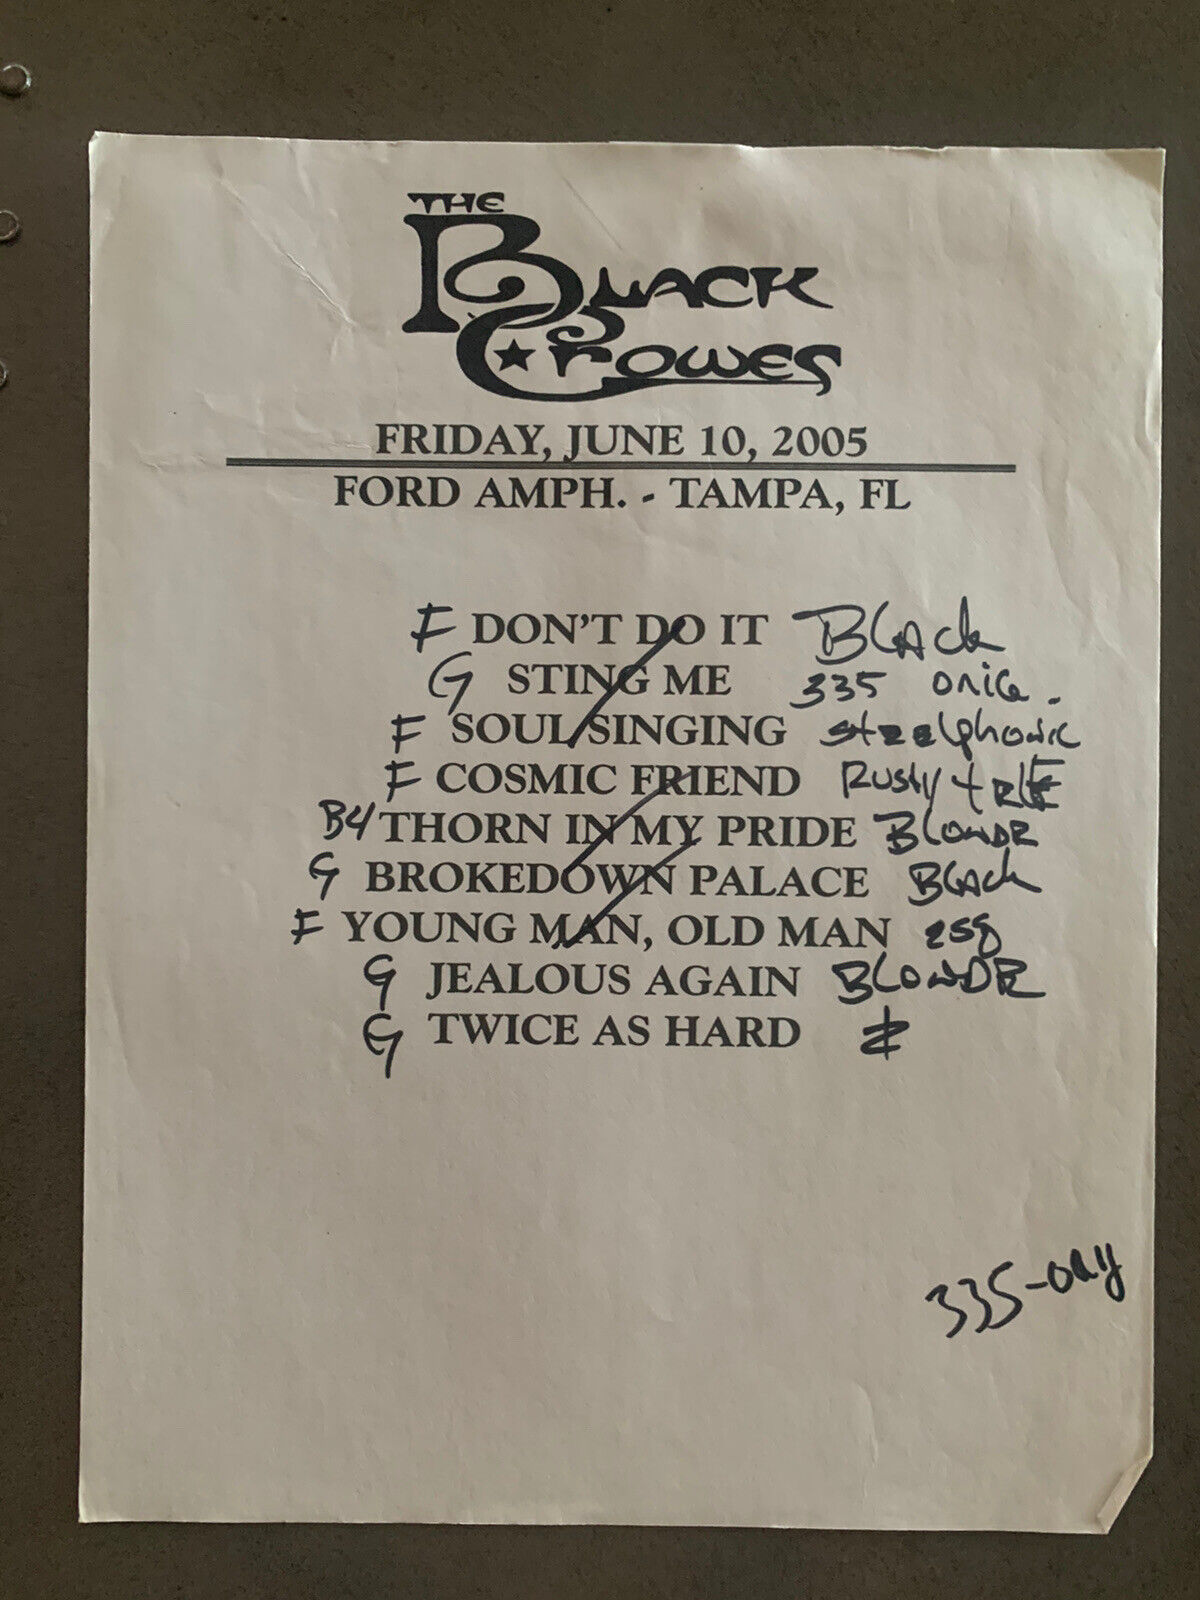 THE
BLACK
CROWES
FRIDAY, JUNE 10, 2005
FORD AMPH. - TAMPA, FL
F DON'T DO IT Black
G STING ME 335
F SOUL SINGING steelphonic
F COSMIC FRIEND Rusty +
B4 THORN IN MY PRIDE BLONDE
G BROKEDOWN PALACE Black
F YOUNG MAN, OLD MAN
G JEALOUS AGAIN BLONDE
G TWICE AS HARD
335-only